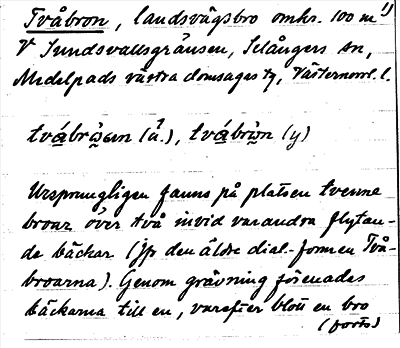 Tvåbron, landsvägsbro omkr. 100 m 1)
V Sundsvallsgränsen, Selångers sn,
Medelpads västra domsagas tg, Västernorrl. l.
tvåbrôɷn (ä.), tvåbrôn (y)
Ursprungligen fanns på platsen tvenne
broar över två invid varandra flytan-
de bäckar (jfr den äldre dial-formen Två-
broarna). Genom grävning förenades
bäckarna till en, varefter blott en bro
(forts)